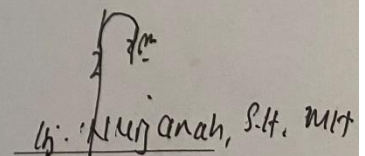 Hj. Nurjanah, S.H. MH